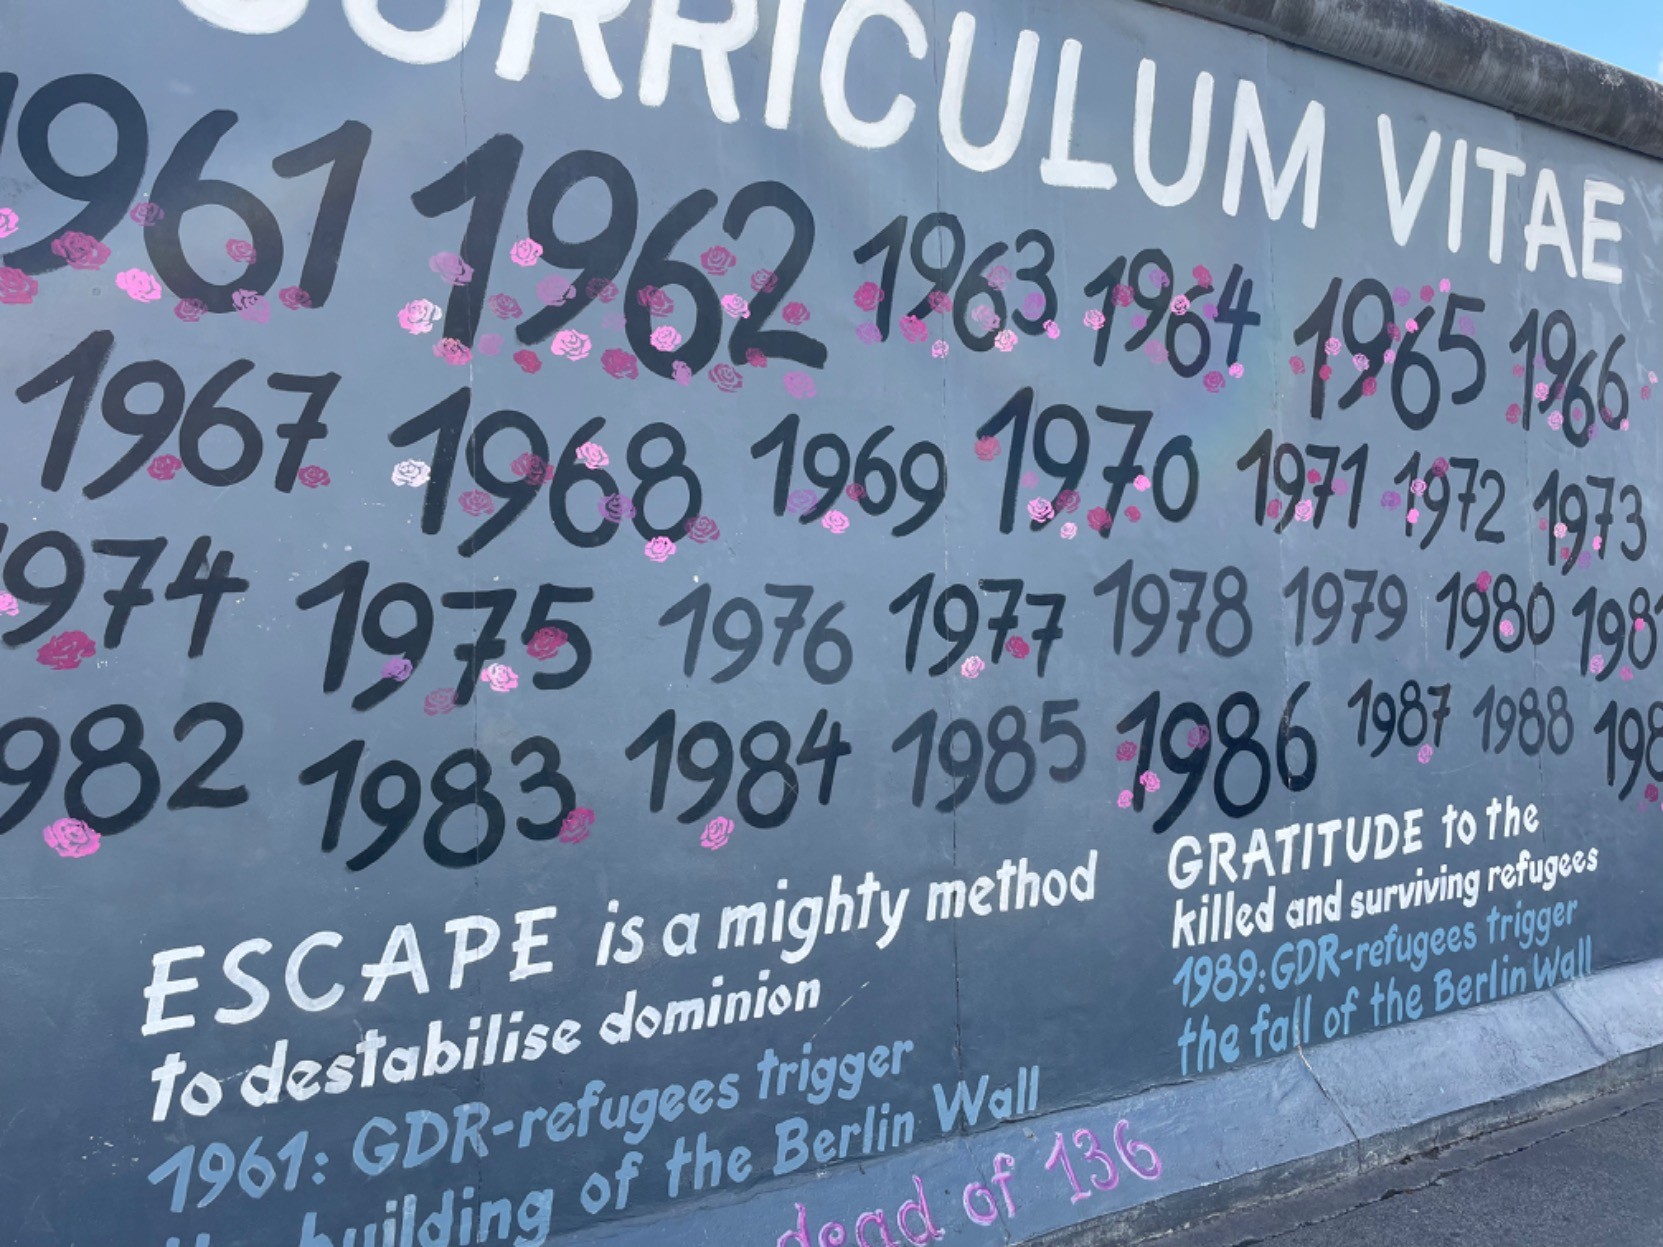 CURRICULUM VITAE
1961 1962 1963 1964 1965 1966
1967 1968 1969 1970 1971 1972 1973
1974 1975 1976 1977 1978 1979 1980 1981
1982 1983 1984 1985 1986 1987 1988 198
ESCAPE is a mighty method
to destabilise dominion
1961: GDR-refugees trigger
building of the Berlin Wall
GRATITUDE to the
killed and surviving refugees
1989: GDR-refugees trigger
the fall of the Berlin Wall
dead of 136